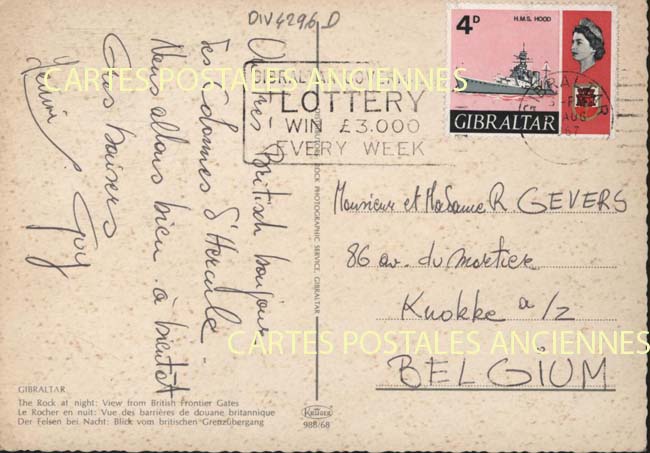 DIV4296 D
4D
H.M.S. HOOD
GIBRALTAR
LOTTERY
WIN £3.000
EVERY WEEK
AUG
67
CARTES POSTALES ANCIENNES
Un très British bonjour
des Colonnes d'Hercule.
Nous allons bien. à bientôt
Gros baisers
Guy
Monsieur et Madame R. GEVERS
86 av. du mortier
Knokke a/z
BELGIUM
CARTES POSTALES ANCIENNES
ROCK PHOTOGRAPHIC SERVICE, GIBRALTAR
GIBRALTAR
The Rock at night: View from British Frontier Gates
Le Rocher en nuit: Vue des barrières de douane britannique
Der Felsen bei Nacht: Blick vom britischen Grenzübergang
Krüger
988/68